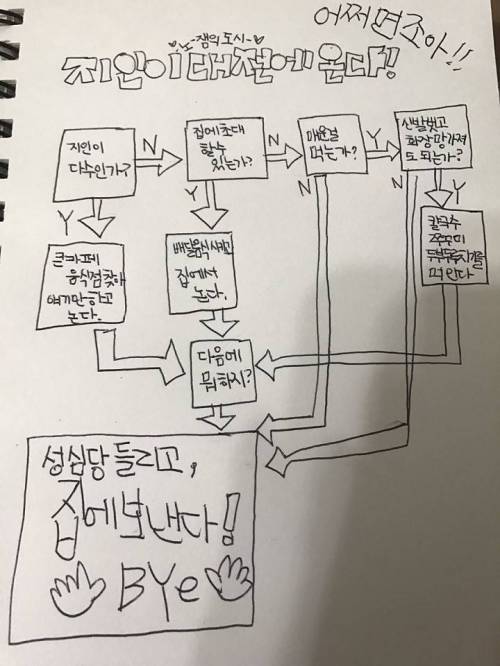 어쩌면조아!!
노-잼의도시~
지인이대전에온다!
지인이
다수인가?
N
집에초대
할수
있는가?
N
매운걸
먹는가?
Y
신발벗고
화장망가져
도되는가?
Y
Y
N
N
Y
큰카페
음식점찾아
얘기만하고
논다.
배달음식시키고
집에서
논다.
칼국수
쭈꾸미
두부두루치기를
먹인다
다음에
뭐하지?
성심당들리고,
집에보낸다!
BYe